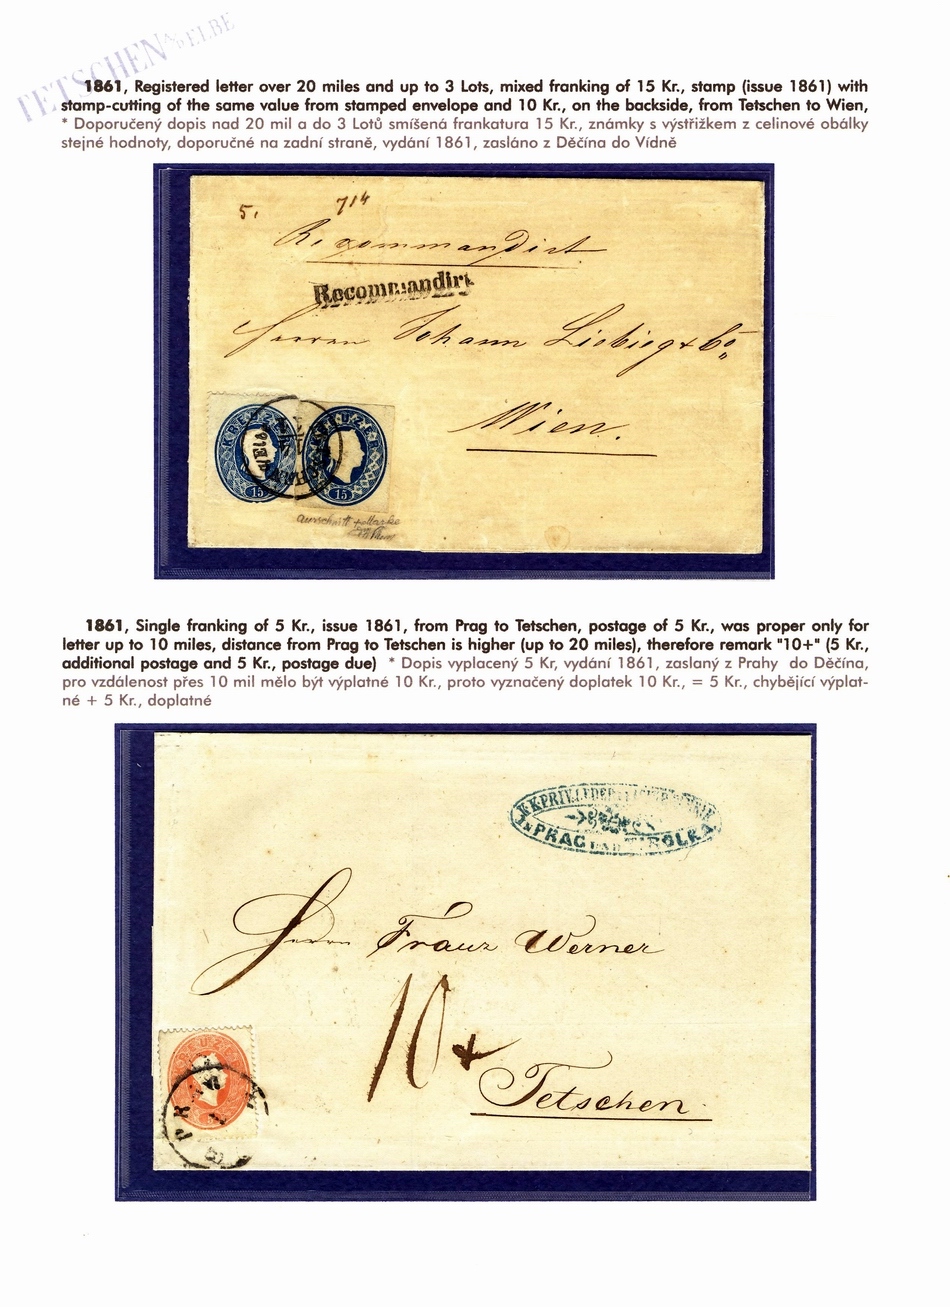 TETSCHEN A/D ELBE
1861, Registered letter over 20 miles and up to 3 Lots, mixed franking of 15 Kr., stamp (issue 1861) with
stamp-cutting of the same value from stamped envelope and 10 Kr., on the backside, from Tetschen to Wien,
* Doporučený dopis nad 20 mil a do 3 Lotů smíšená frankatura 15 Kr., známky s výstřižkem z celinové obálky
stejné hodnoty, doporučné na zadní straně, vydání 1861, zasláno z Děčína do Vídně
5. 714
Recommandirt
Recommandirt
Herrn Johann Liebieg & Co
Wien.
KREUZER KREUZER
15 15
Ausschnitt + Marke
1861, Single franking of 5 Kr., issue 1861, from Prag to Tetschen, postage of 5 Kr., was proper only for
letter up to 10 miles, distance from Prag to Tetschen is higher (up to 20 miles), therefore remark "10+" (5 Kr.,
additional postage and 5 Kr., postage due) * Dopis vyplacený 5 Kr, vydání 1861, zaslaný z Prahy do Děčína,
pro vzdálenost přes 10 mil mělo být výplatné 10 Kr., proto vyznačený doplatek 10 Kr., = 5 Kr., chybějící výplat-
né + 5 Kr., doplatné
K.K.PRIV.
IN PRAG UND SMOLKA
Herrn Franz Werner
10+
KREUZER
PRAG
Tetschen.